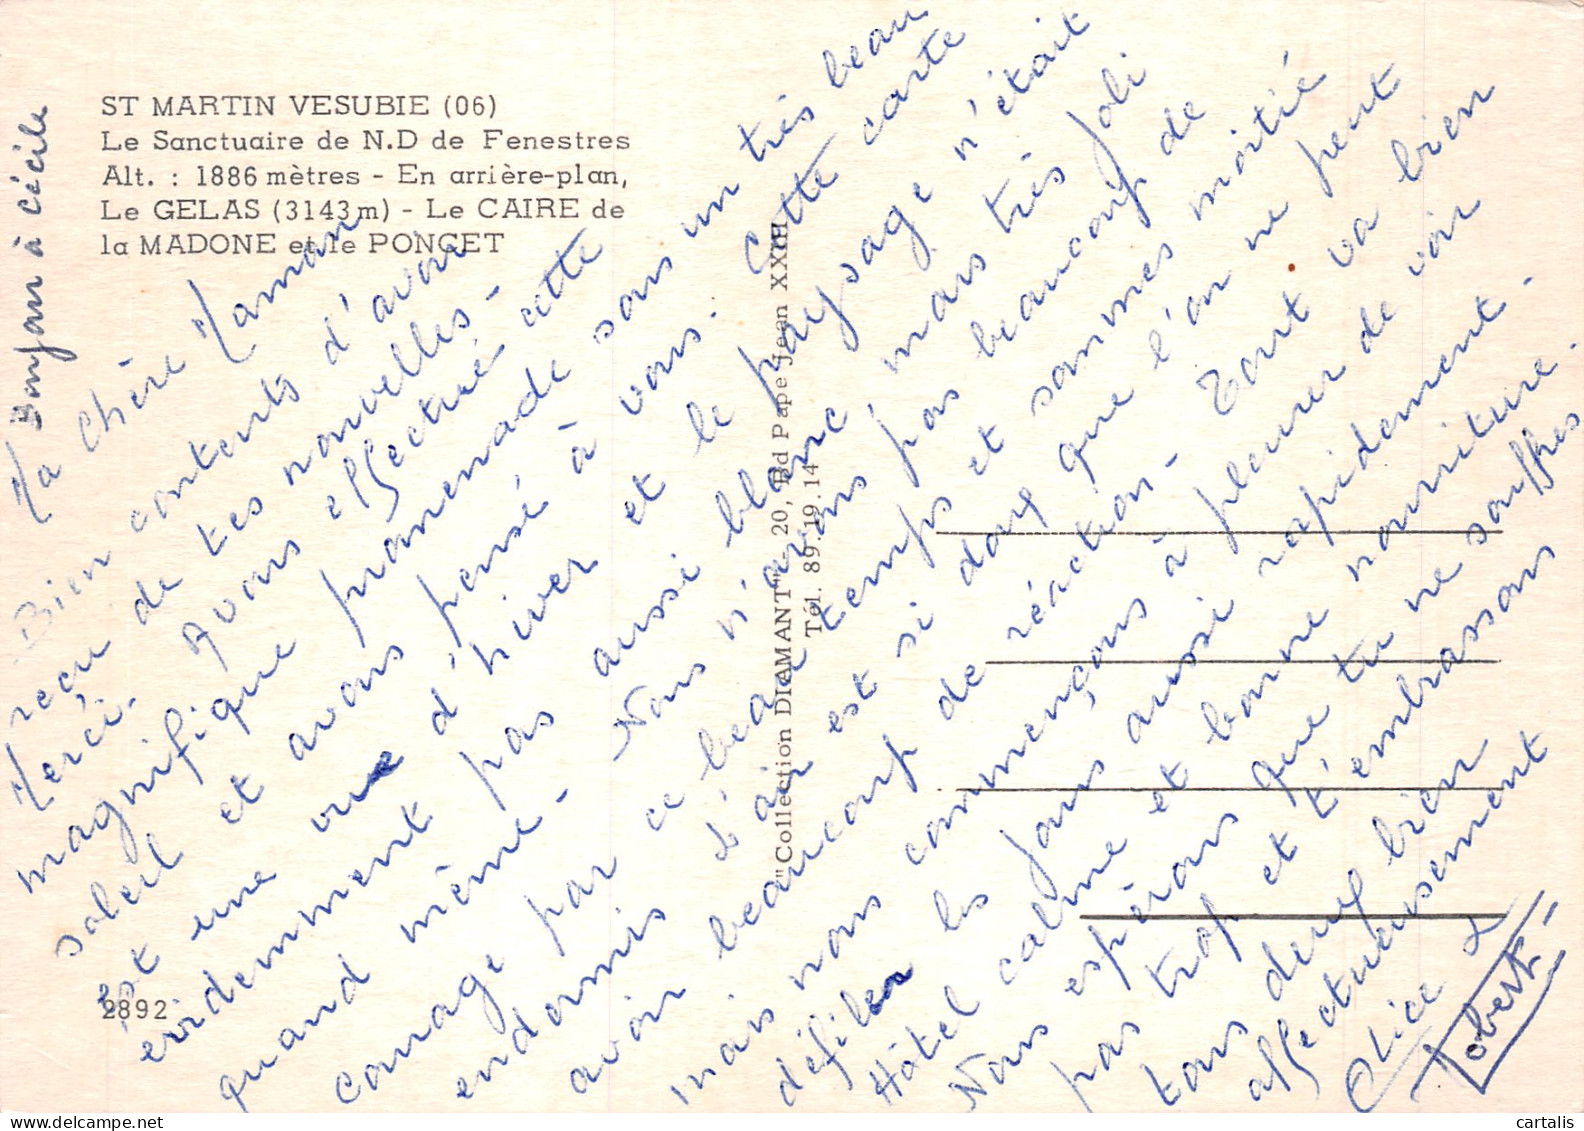 ST MARTIN VESUBIE (06)
Le Sanctuaire de N.D de Fenestres
Alt. : 1886 mètres - En arrière-plan,
Le GELAS (3143m) - Le CAIRE de
la MADONE et le PONCET
2892
"Collection DIAMANT" - 20, Bd Pape Jean XXIII
Tél. 89.19.14
Bonjour à Cécile
Ma chère Maman
Bien contents d'avoir
reçu de tes nouvelles -
Merci. Avons effectué cette
magnifique promenade sous un très beau
soleil et avons pensé à vous. Cette carte
est une vue d'hiver et le paysage n'était
évidemment pas aussi blanc, mais très joli
quand même - Nous n'avons pas beaucoup de
courage par ce beau temps et sommes moitié
endormis. L'air est si doux que l'on ne peut
avoir beaucoup de réaction - Tout va bien
mais nous commençons à pleurer de voir
défiler les jours aussi rapidement.
Hôtel calme et bonne nourriture.
Nous espérons que tu ne souffres
pas trop et t'embrassons
tous deux bien
affectueusement
Alice &
Robert
cartalis